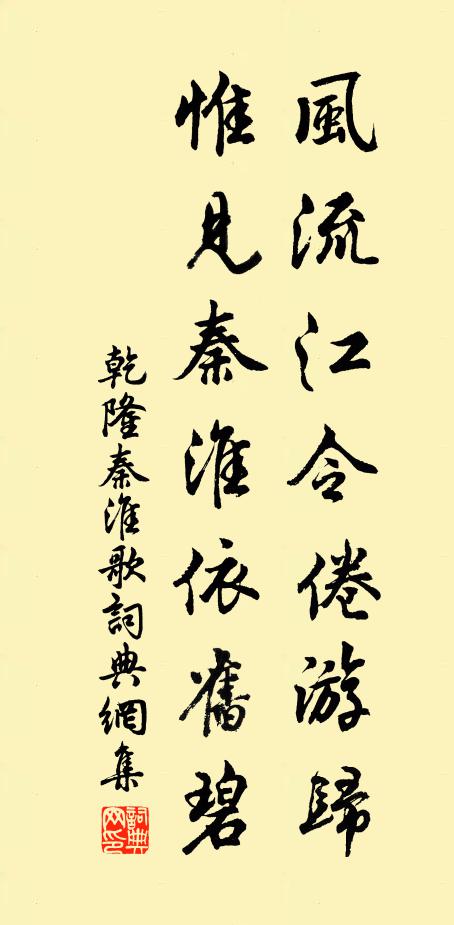 風流江令倦游歸
惟見秦淮依舊碧
乾隆秦淮歌詞典網集
詞典網印